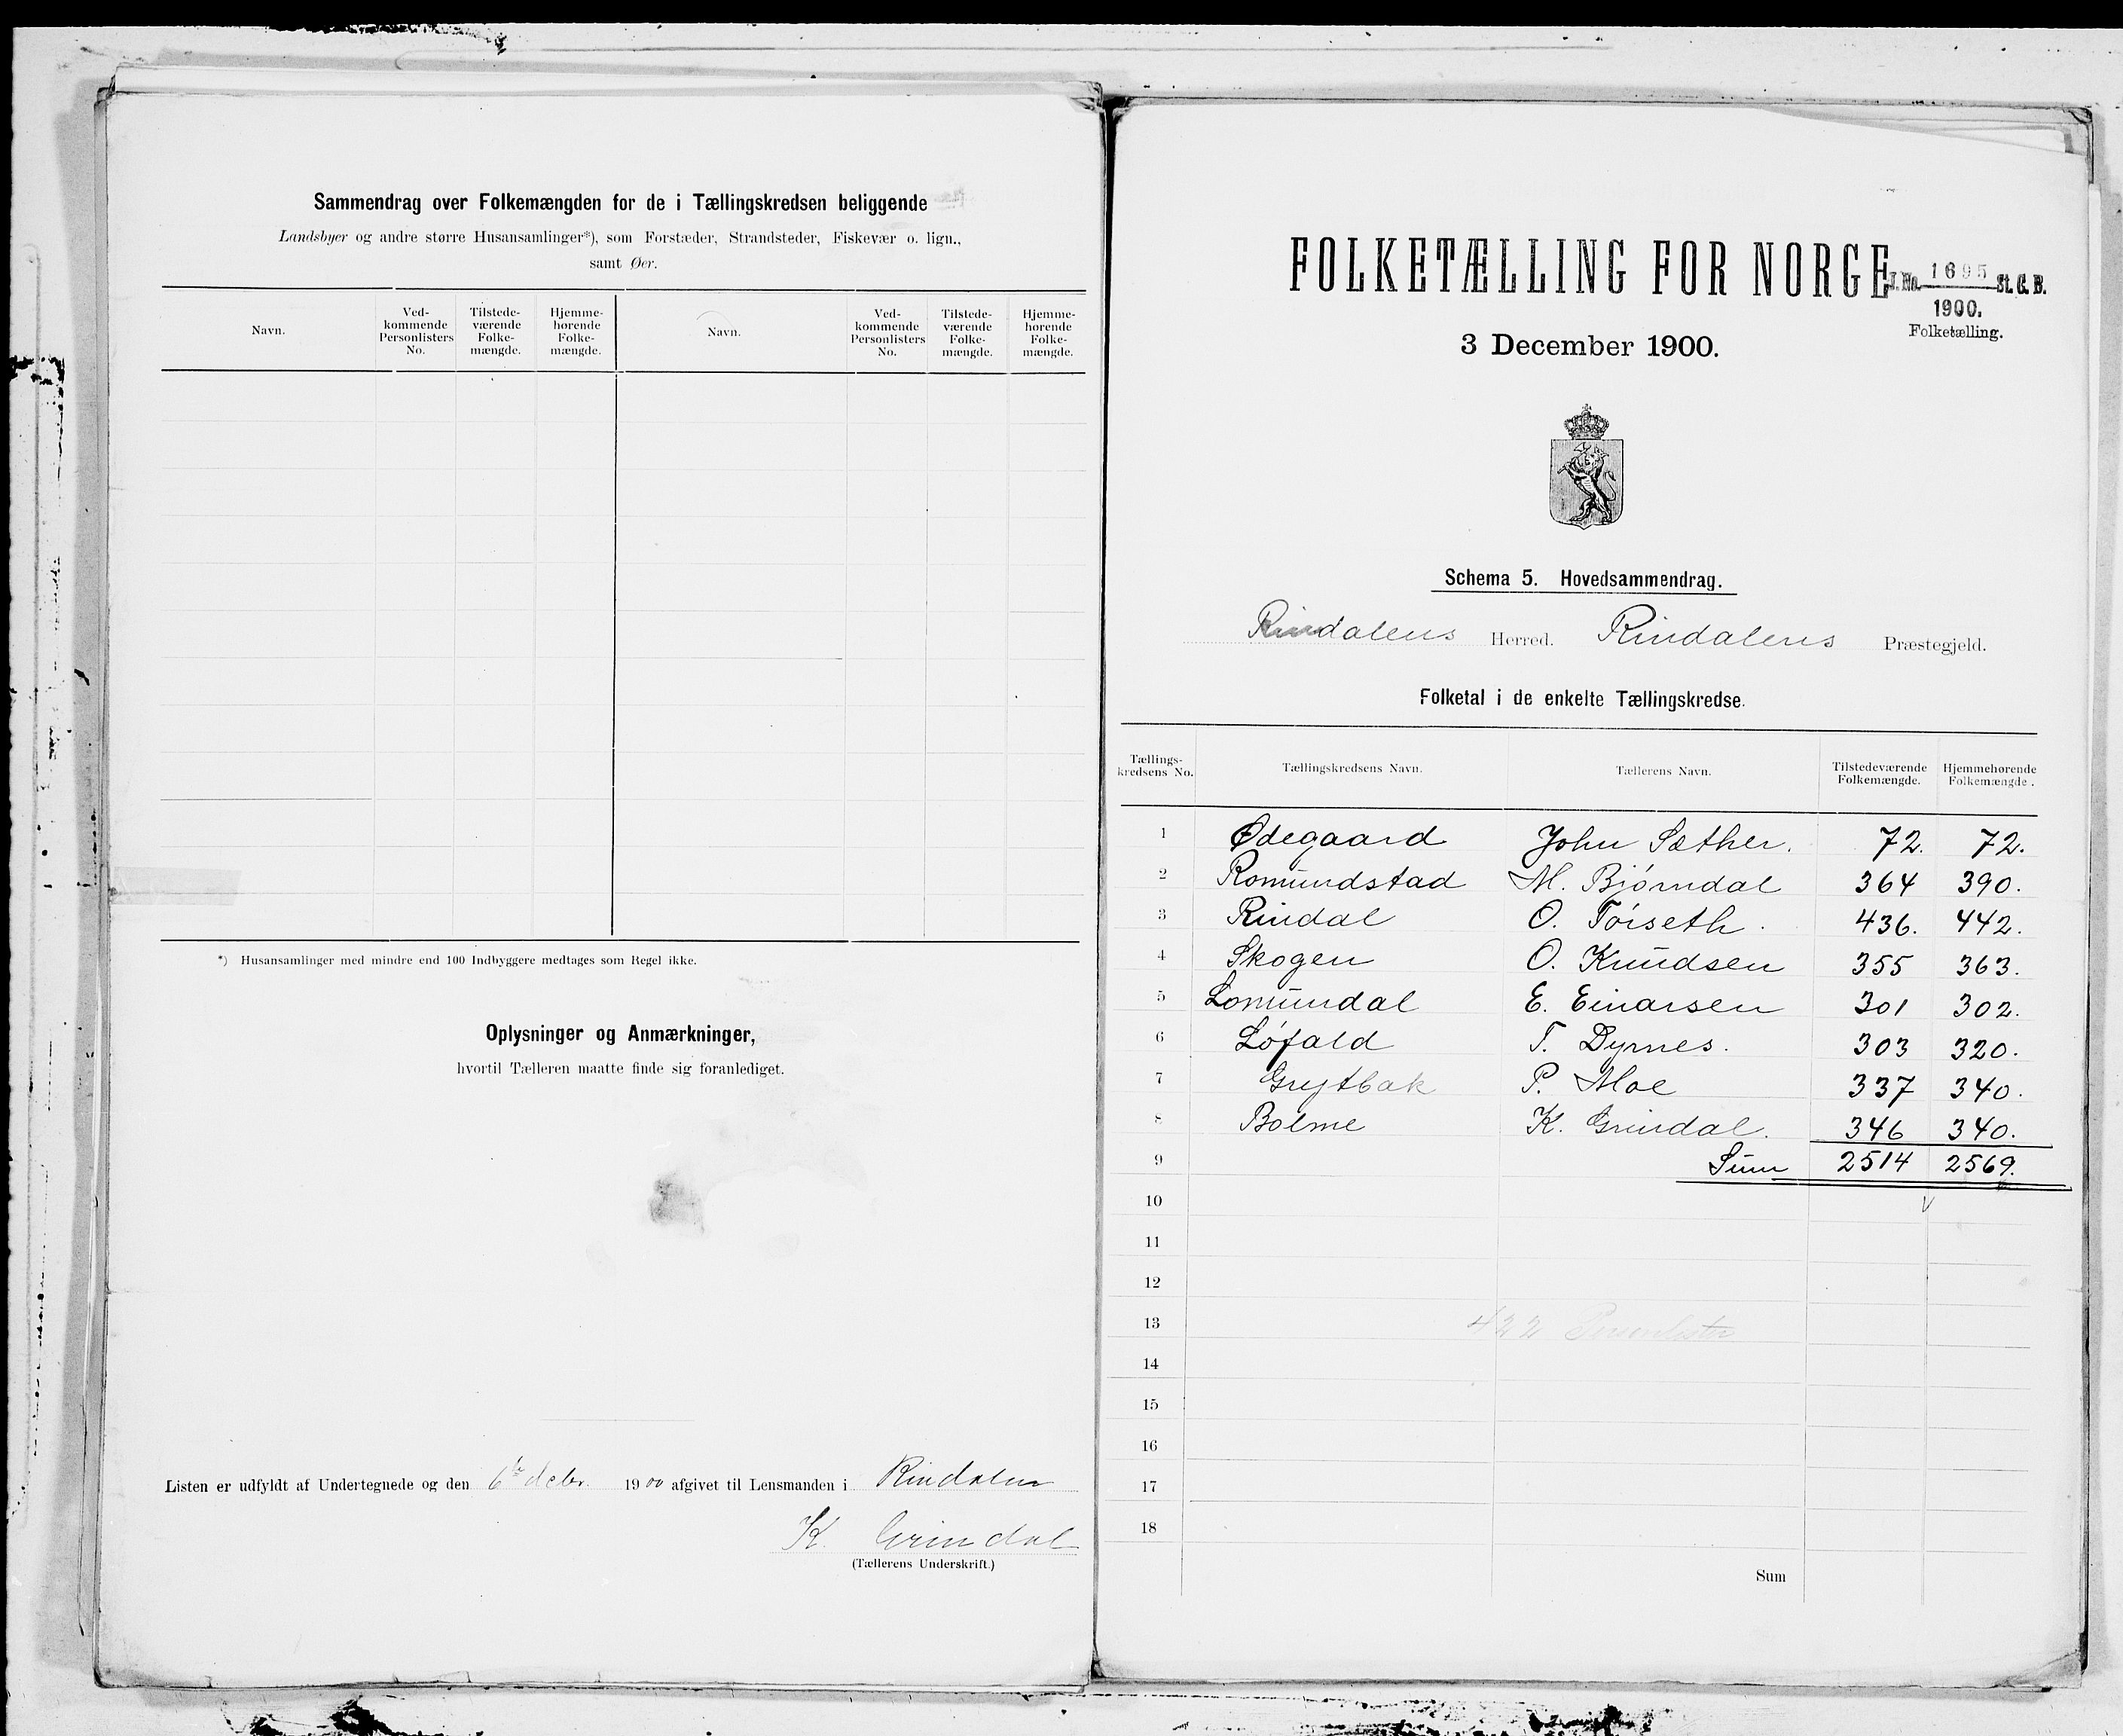 Sammendrag over Folkemængden for de i Tællingskredsen beliggende
Landsbyer og andre større Husansamlinger*), som Forstæder, Strandsteder, Fiskevær o. lign.,
samt Øer.
Navn. Ved-kommende Personlisters No. Tilstede-værende Folke-mængde. Hjemme-hørende Folke-mængde. Navn. Ved-kommende Personlisters No. Tilstede-værende Folke-mængde. Hjemme-hørende Folke-mængde.
*) Husansamlinger med mindre end 100 Indbyggere medtages som Regel ikke.
Oplysninger og Anmærkninger,
hvortil Tælleren maatte finde sig foranlediget.
Listen er udfyldt af Undertegnede og den 6te decbr. 1900 afgivet til Lensmanden i Rindalen
K. Grindal
(Tællerens Underskrift.)
FOLKETÆLLING FOR NORGE
J. No. 1695 St. C. B.
1900.
Folketælling.
3 December 1900.
Schema 5. Hovedsammendrag.
Rindalens Herred. Rindalens Præstegjeld.
Folketal i de enkelte Tællingskredse.
Tællings-kredsens No. Tællingskredsens Navn. Tællerens Navn. Tilstedeværende Folkemængde. Hjemmehørende Folkemængde.
1 Ødegaard John Sæther. 72. 72.
2 Romundstad M. Bjørndal 364 390.
3 Rindal O. Tørseth. 436. 442.
4 Skogen O. Knudsen 355 363.
5 Lomundal E. Einarsen 301 302.
6 Løfald T. Dyrnes. 303 320.
7 Grytbak P. Moe 337 340.
8 Bolme K. Grindal. 346 340.
9 Sum 2514 2569.
10
11
12
13 422 Personlister
14
15
16
17
18
Sum